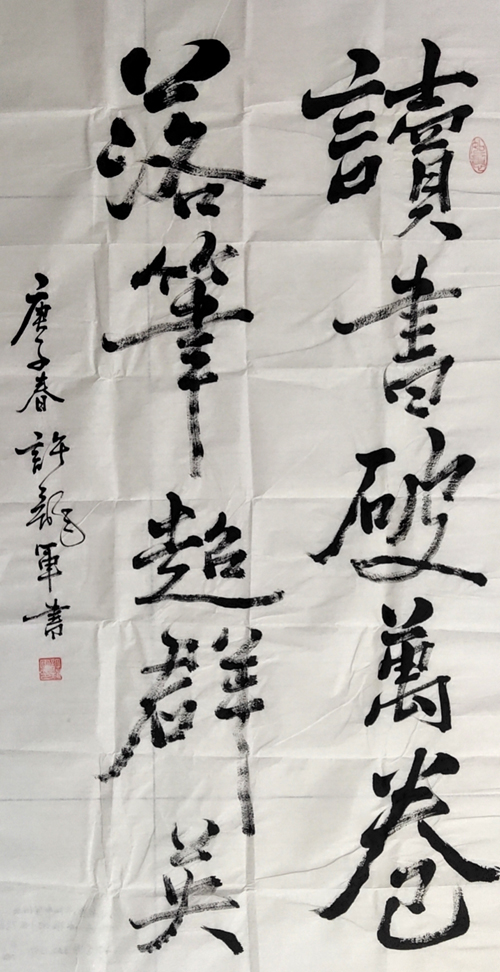 讀書破萬卷
落筆超群英
庚子春許龍軍書